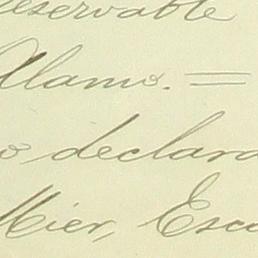 eservable
Alamo. =
o declara
Mier, Esco